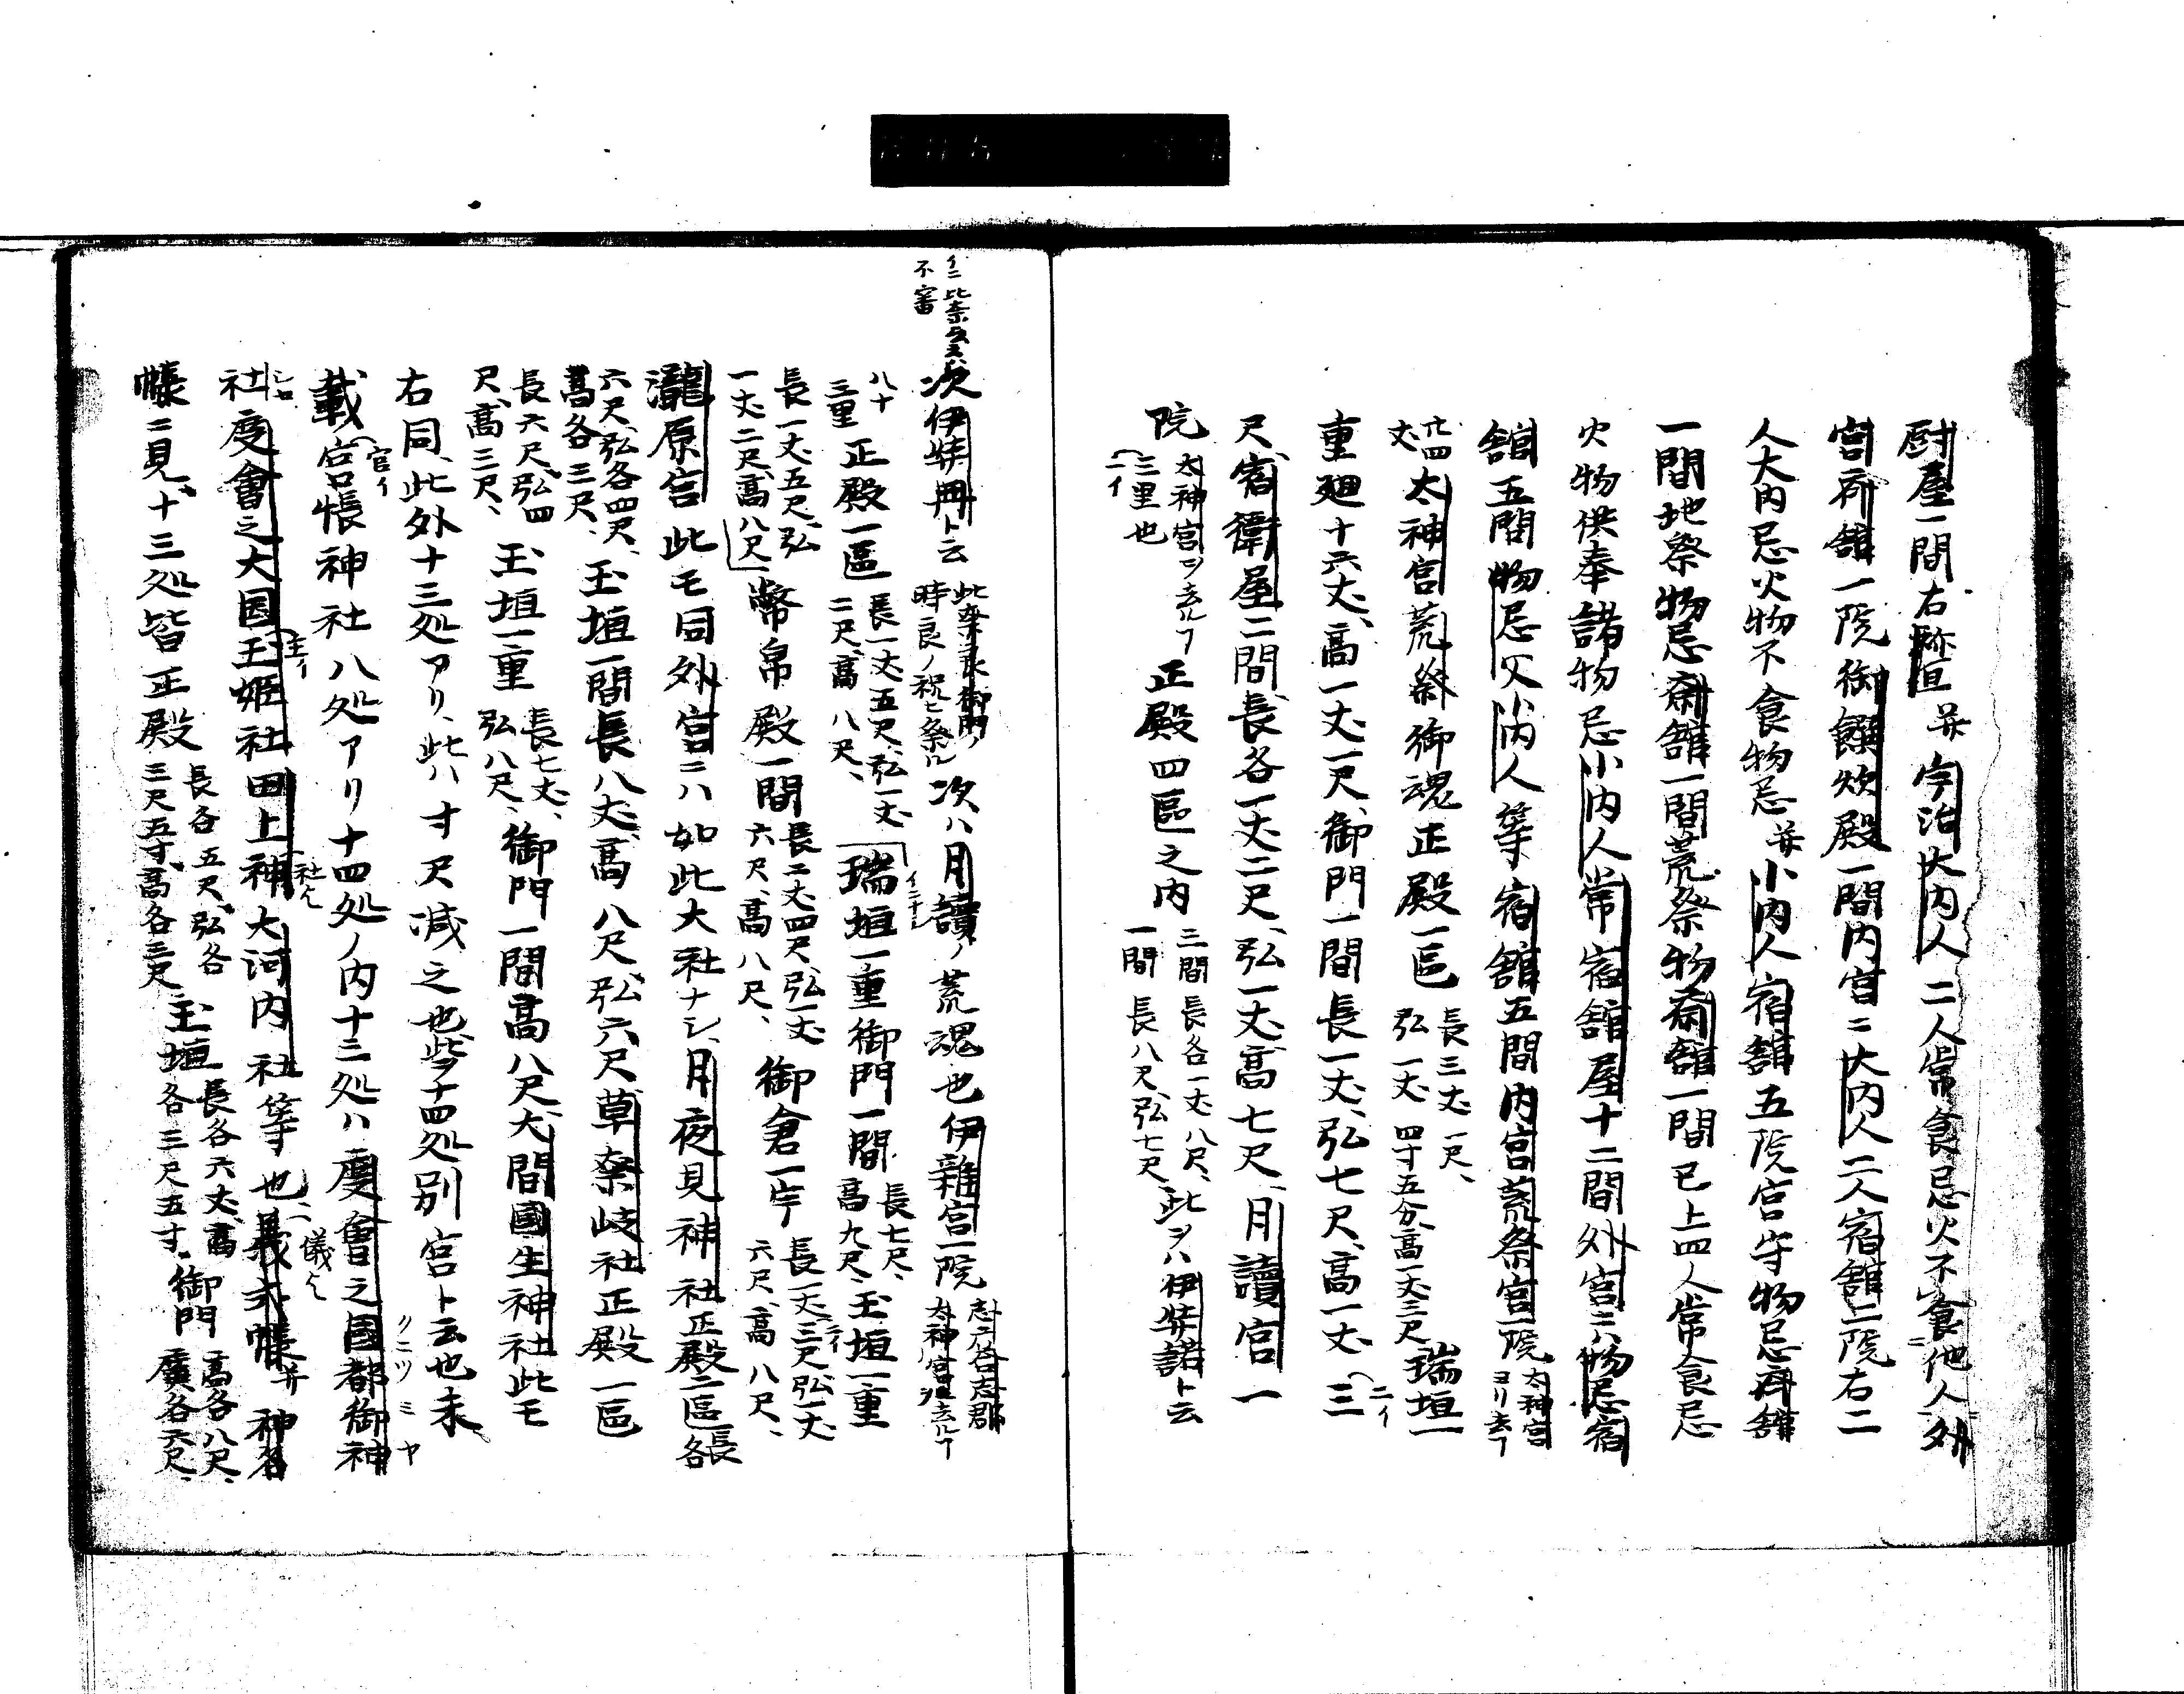 厨屋一間右祢宜并宇治大内人二人常食忌火不食他人外
宮斎舘一院御饌炊殿一間内宮ニ大内人二人宿舘二院右二
人大内忌火物不食物忌并小内人宿舘五院宮守物忌斎舘
一間地祭物忌斎舘一間荒祭物斎舘一間已上四人常食忌
火物供奉諸物忌小内人常宿舘屋十二間外宮ニハ物忌宿
舘五間物忌父小内人等宿舘五間内宮荒祭宮一院太神宮ヨリ去フ
廿四丈太神宮荒祭御魂正殿一區長三丈一尺、弘一丈四寸五分、高一丈三尺瑞垣一
重廻十六丈、高一丈一尺、御門一間長一丈、弘七尺、高一丈三
二イ
尺、宿衛屋二間、長各一丈二尺、弘一丈、高七尺、月讀宮一
院太神宮ヲ去ルフ三里也正殿四區之内三間長各一丈八尺、一間長八尺、弘七尺、此ヲハ伊弉諾ト云
二イ
イニ此条云々不審
次伊弉冊ト云時良ノ祝ヒ祭ル次ハ月讀ノ荒魂也伊雜宮一院志广答志郡太神宮ヲ去ルフ
八十三里正殿一區長一丈五尺、弘一丈二尺、高八尺、瑞垣一重御門一間長七尺、高九尺、玉垣一重
長一丈五尺、弘一丈二尺、高八尺幣帛殿一間長二丈四尺、弘一丈六尺、高八尺、御倉一宇長一丈三尺、弘一丈六尺、高八尺、
瀧原宮此モ同外宮ニハ如此大社ナシ、月夜見神社正殿二區長各
六尺、弘各四尺、高各三尺、玉垣一間長八丈、高八尺、弘六尺、草奈岐社正殿一區
長六尺、弘四尺、高三尺、玉垣一重長七丈、弘八尺、御門一間高八尺、大間國生神社此モ
右同、此外十三処アリ、此ハ寸尺減之也、此等十四処別宮ト云也未
載官帳神社八処アリ十四処ノ内十三処ハ度會之國都御神
官イ
クニツミヤ
社度會之大國玉姫社田上神大河内社等也儀式帳并神名
主イ
帳ニ見、十三処皆正殿長各五尺、弘各三尺五寸、高各三尺玉垣長各六丈、高各三尺五寸、御門高各八尺、廣各六尺、